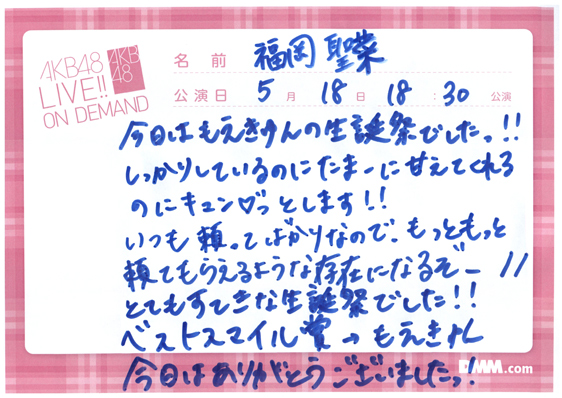 AKB48
LIVE!!
ON DEMAND
AKB
48
名前 福岡 聖菜
公演日 5月 18日 18:30 公演
今日はもえきゅんの生誕祭でしたっ!!
しっかりしているのにたまーに甘えてくれる
のにキュン♡っとします!!
いつも頼ってばかりなので、もっともっと
頼てもらえるような存在になるぞー//
とてもすてきな生誕祭でした!!
ベストスマイル賞→もえきゅん
今日はありがとうございましたっ!
DMM.com